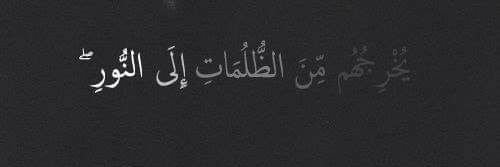 يُخْرِجُهُم مِّنَ الظُّلُمَاتِ إِلَى النُّورِ ۖ